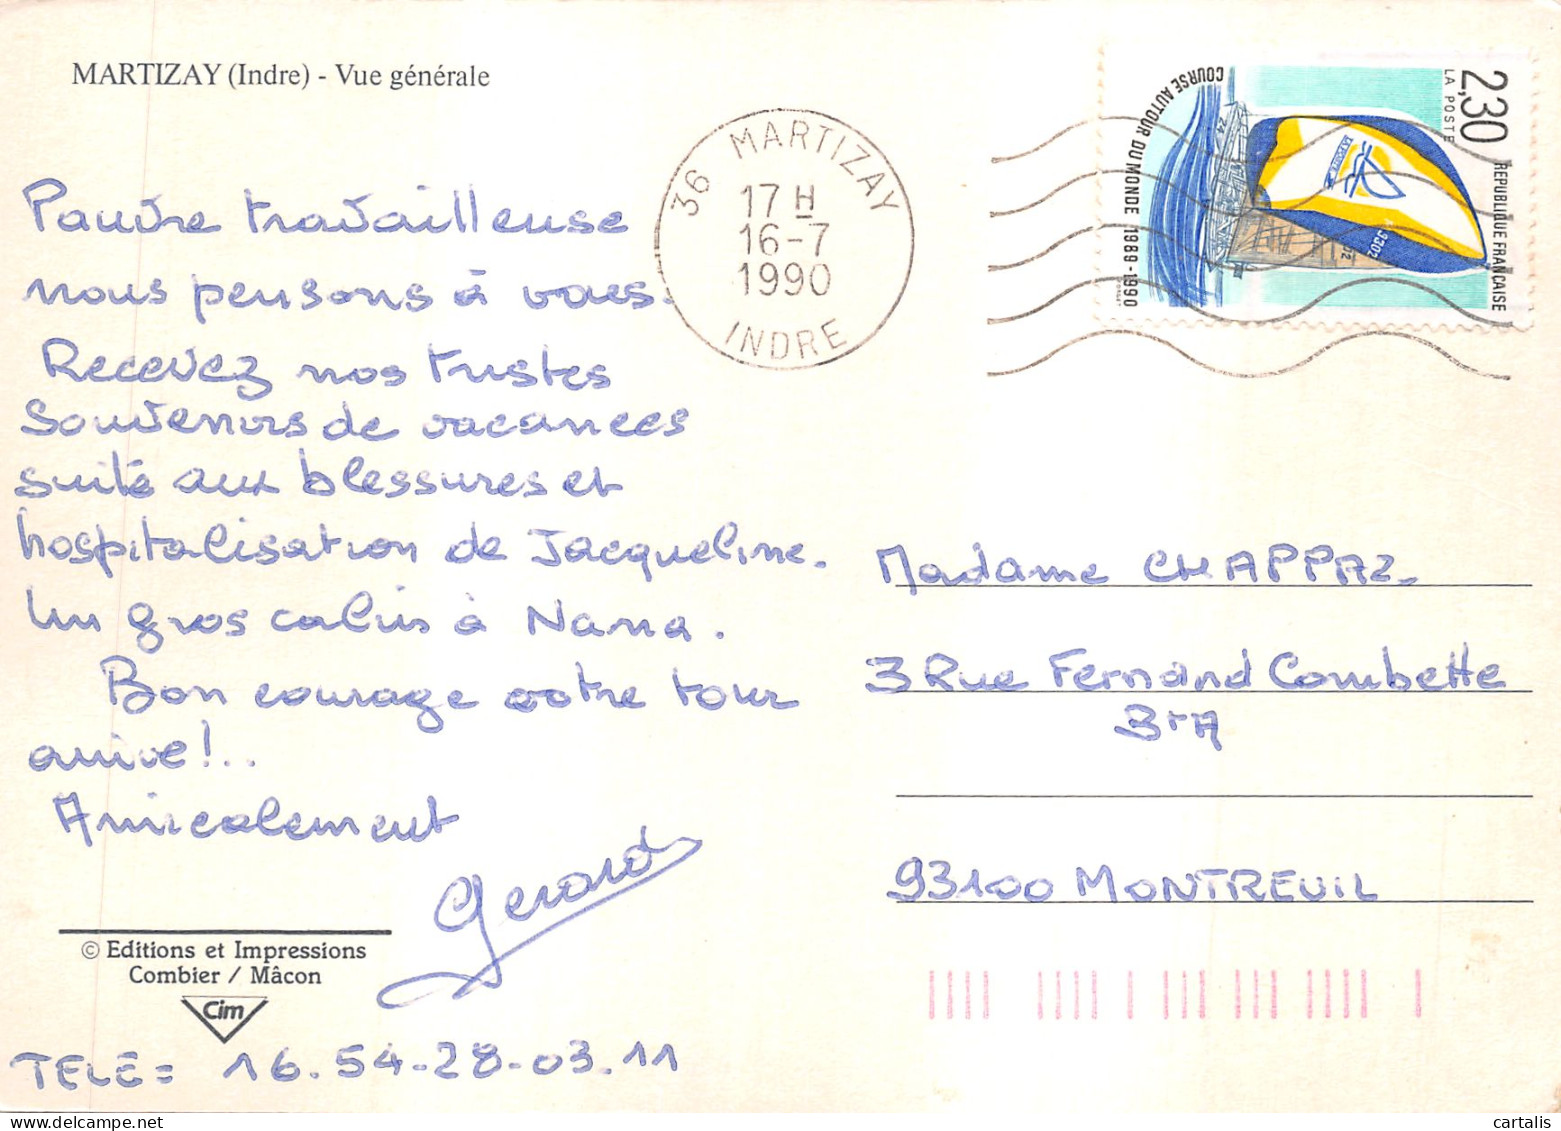 MARTIZAY (Indre) - Vue générale
Pauvre travailleuse
nous pensons à vous.
Recevez nos tristes
souvenirs de vacances
suite aux blessures et
hospitalisation de Jacqueline.
Un gros calin à Nana.
Bon courage votre tour
arrive!..
Amicalement
Gerard
© Editions et Impressions
Combier / Mâcon
Cim
TELE = 16.54-28-03.11
36 MARTIZAY
17 H
16-7
1990
INDRE
2,30
LA POSTE
REPUBLIQUE FRANCAISE
COURSE AUTOUR DU MONDE 1989-1990
Madame CHAPPAZ
3 Rue Fernand Combette
BtA
93100 MONTREUIL
cartalis